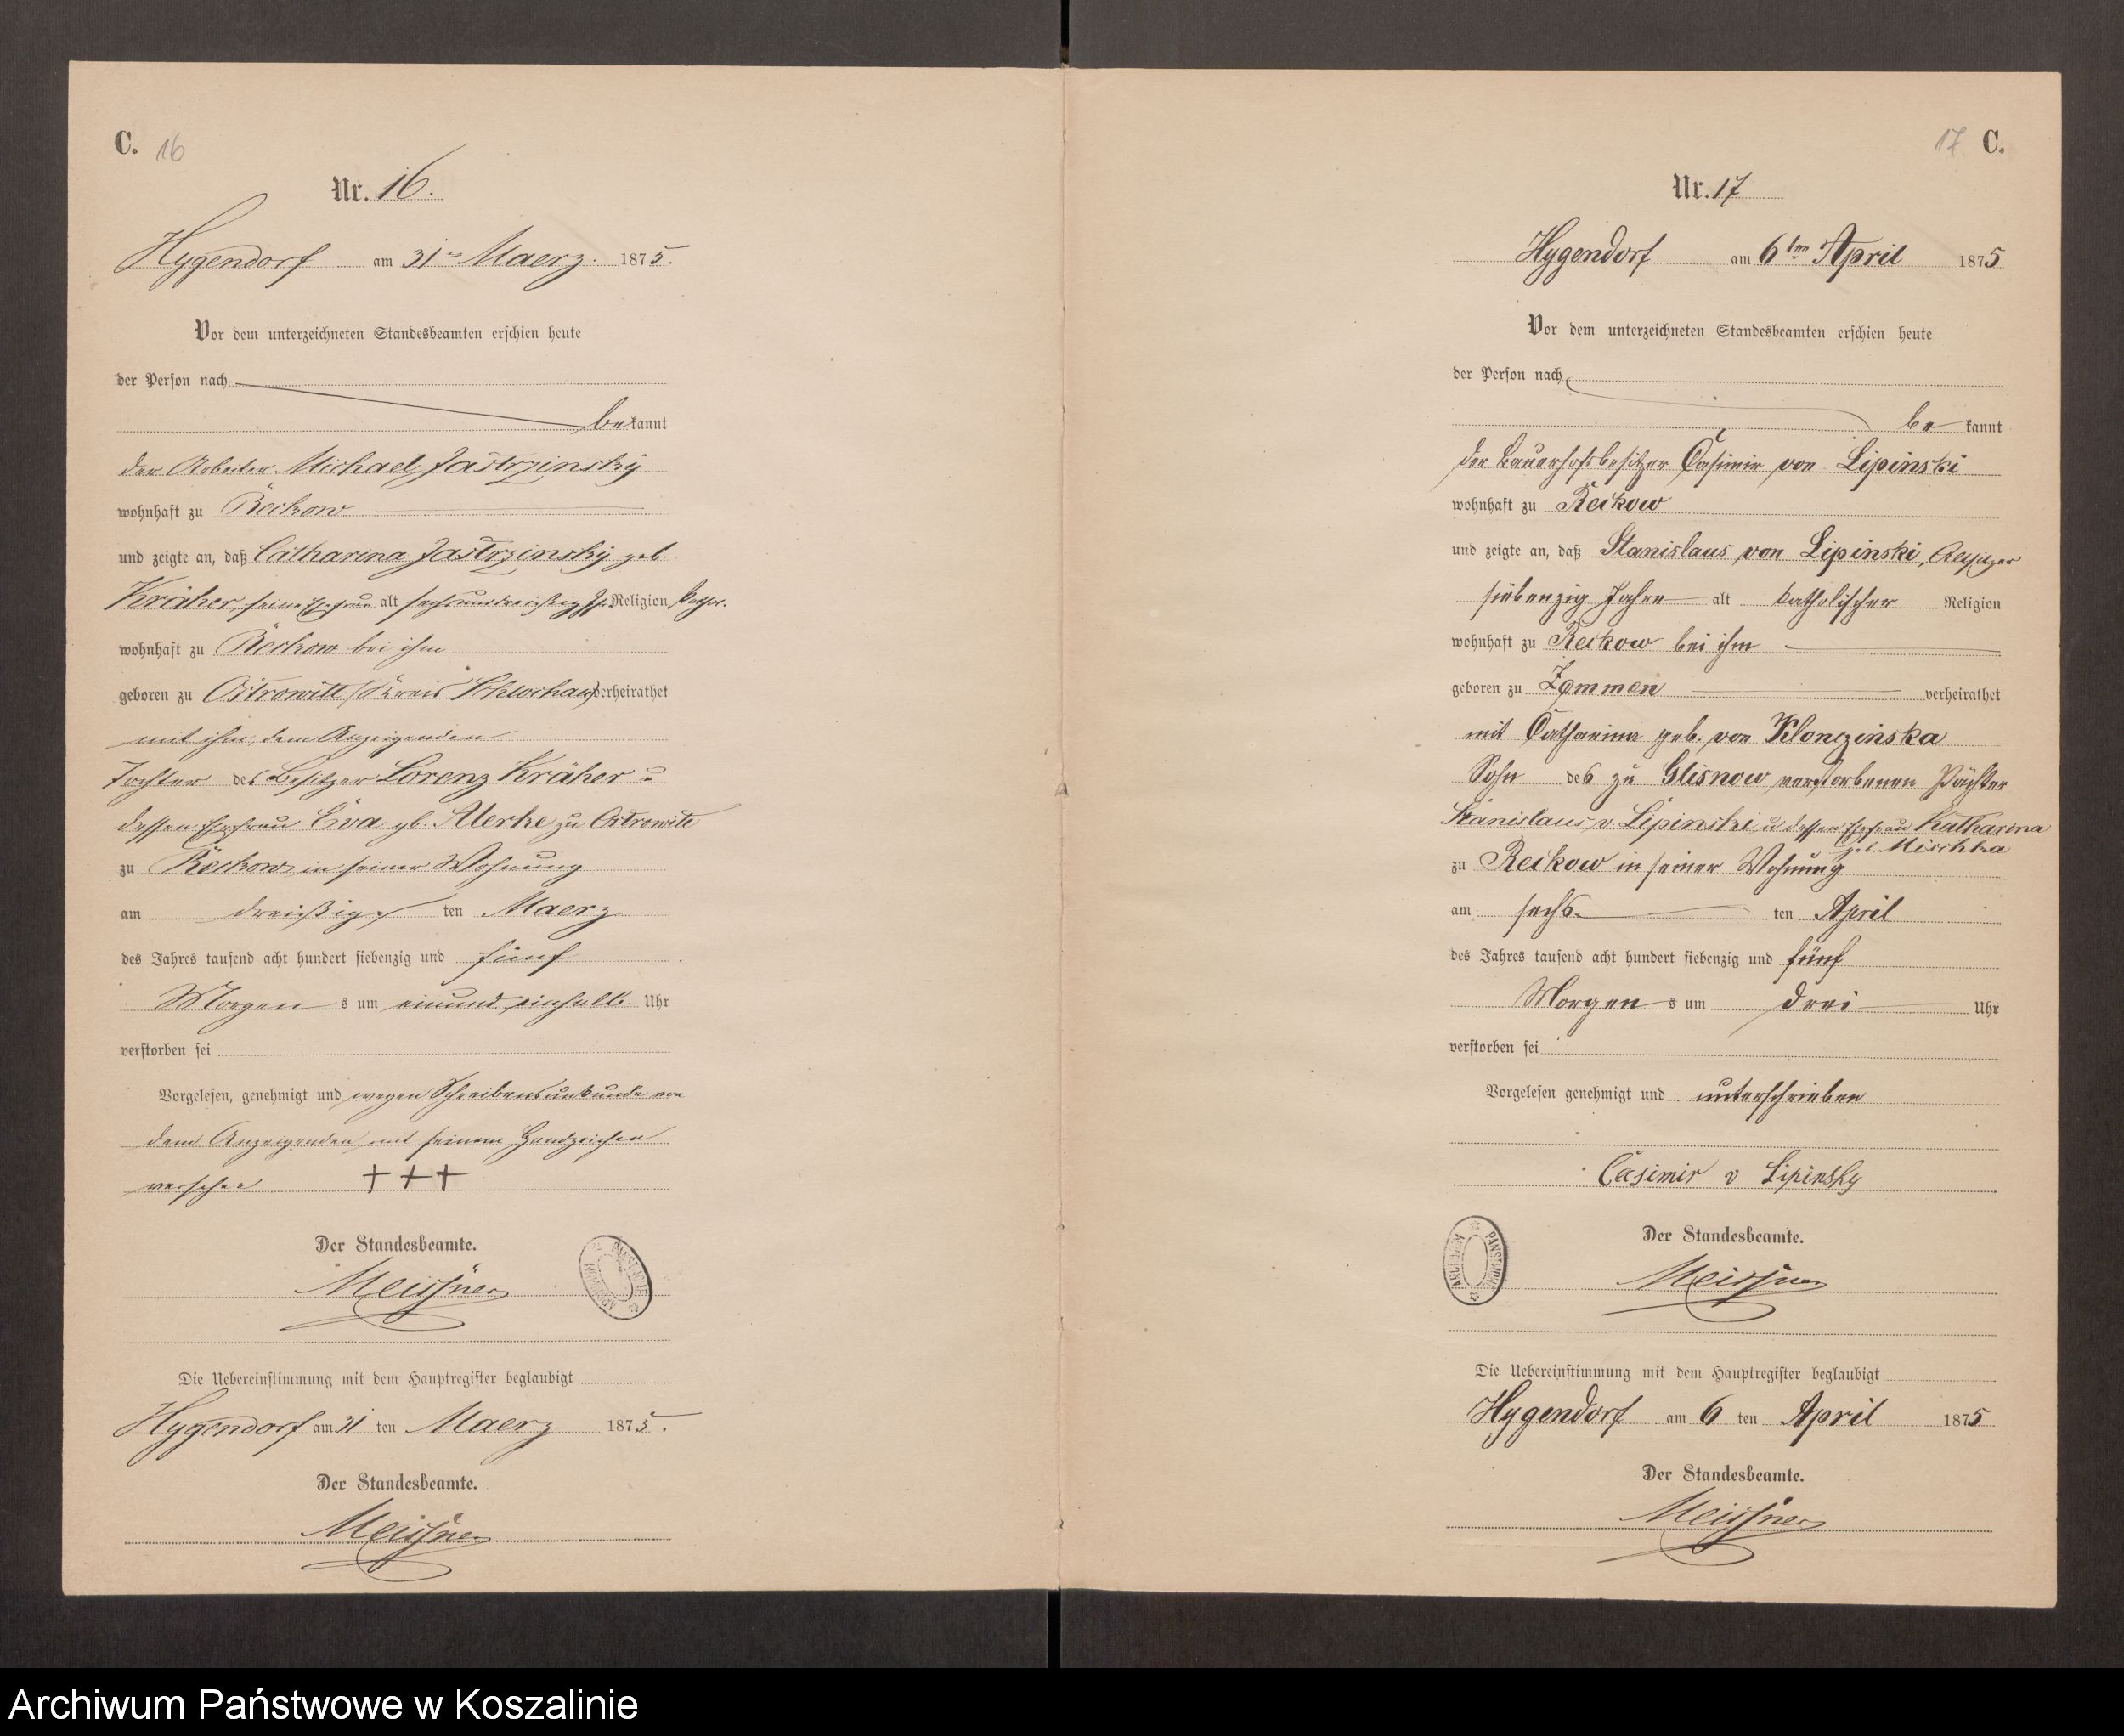 C. 16
Nr. 16.
Hygendorf am 31ten Maerz. 1875.
Vor dem unterzeichneten Standesbeamten erschien heute
der Person nach
bekannt
der Arbeiter Michael Jastrzinsky
wohnhaft zu Reckow
und zeigte an, daß Catharina Jastrzinsky geb.
Kräher, seine Ehefrau alt sechsunddreißig J. Religion kathol.
wohnhaft zu Reckow bei ihm
geboren zu Ostrowitt (Kreis Schlochau) verheirathet
mit ihm, dem Anzeigenden
Tochter des Besitzer Lorenz Kräher u
dessen Ehefrau Eva gb. zu Ostrowite
zu Reckow in seiner Wohnung
am dreißigs ten Maerz
des Jahres tausend acht hundert siebenzig und fünf
Morgen s um einundeinhalb Uhr
verstorben sei
Vorgelesen, genehmigt und wegen Schreibensunkunde von
dem Anzeigenden mit seinem Handzeichen
versehen +++
Der Standesbeamte.
Meissner
ARCHIWUM PAŃSTWOWE
Die Uebereinstimmung mit dem Hauptregister beglaubigt
Hygendorf am 31 ten Maerz 1875.
Der Standesbeamte.
Meissner
17 C.
Nr. 17
Hygendorf am 6ten April 1875
Vor dem unterzeichneten Standesbeamten erschien heute
der Person nach
be kannt
der Bauerhofsbesitzer Casimir von Lipinski
wohnhaft zu Reckow
und zeigte an, daß Stanislaus von Lipinski, Altsitzer
siebenzig Jahre alt katholischer Religion
wohnhaft zu Reckow bei ihm
geboren zu Zemmen verheirathet
mit Catharina geb. von Klonczinska
Sohn des zu Glisnow verstorbenen Pächter
Stanislaus v. Lipinski u dessen Ehefrau Katharina
geb. Mischka
zu Reckow in seiner Wohnung
am sechs ten April
des Jahres tausend acht hundert siebenzig und fünf
Morgen s um drei Uhr
verstorben sei
Vorgelesen genehmigt und unterschrieben
Casimir v Lipinsky
Der Standesbeamte.
Meissner
ARCHIWUM PAŃSTWOWE
Die Uebereinstimmung mit dem Hauptregister beglaubigt
Hygendorf am 6 ten April 1875
Der Standesbeamte.
Meissner
Archiwum Państwowe w Koszalinie